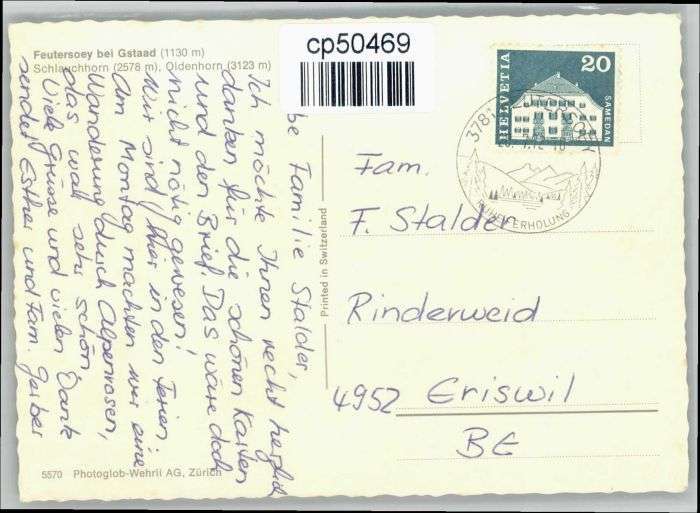 Feutersoey bei Gstaad (1130 m)
Schlauchhorn (2578 m), Oldenhorn (3123 m)
cp50469
HELVETIA
20
SAMEDAN
be Familie Stalder,
Ich möchte Ihnen recht herzlich
danken für die schönen Karten
und den Brief. Das wäre doch
nicht nötig gewesen!
Wir sind hier in den Ferien.
Am Montag machten wir eine
Wanderung durch Alpenrosen,
das war sehr schön.
Viele Grüsse und vielen Dank
sendet Esther und Fam. Gerber
Printed in Switzerland
Fam.
F. Stalder
Rinderweid
4952 Eriswil
BE
5570 Photoglob-Wehrli AG, Zürich